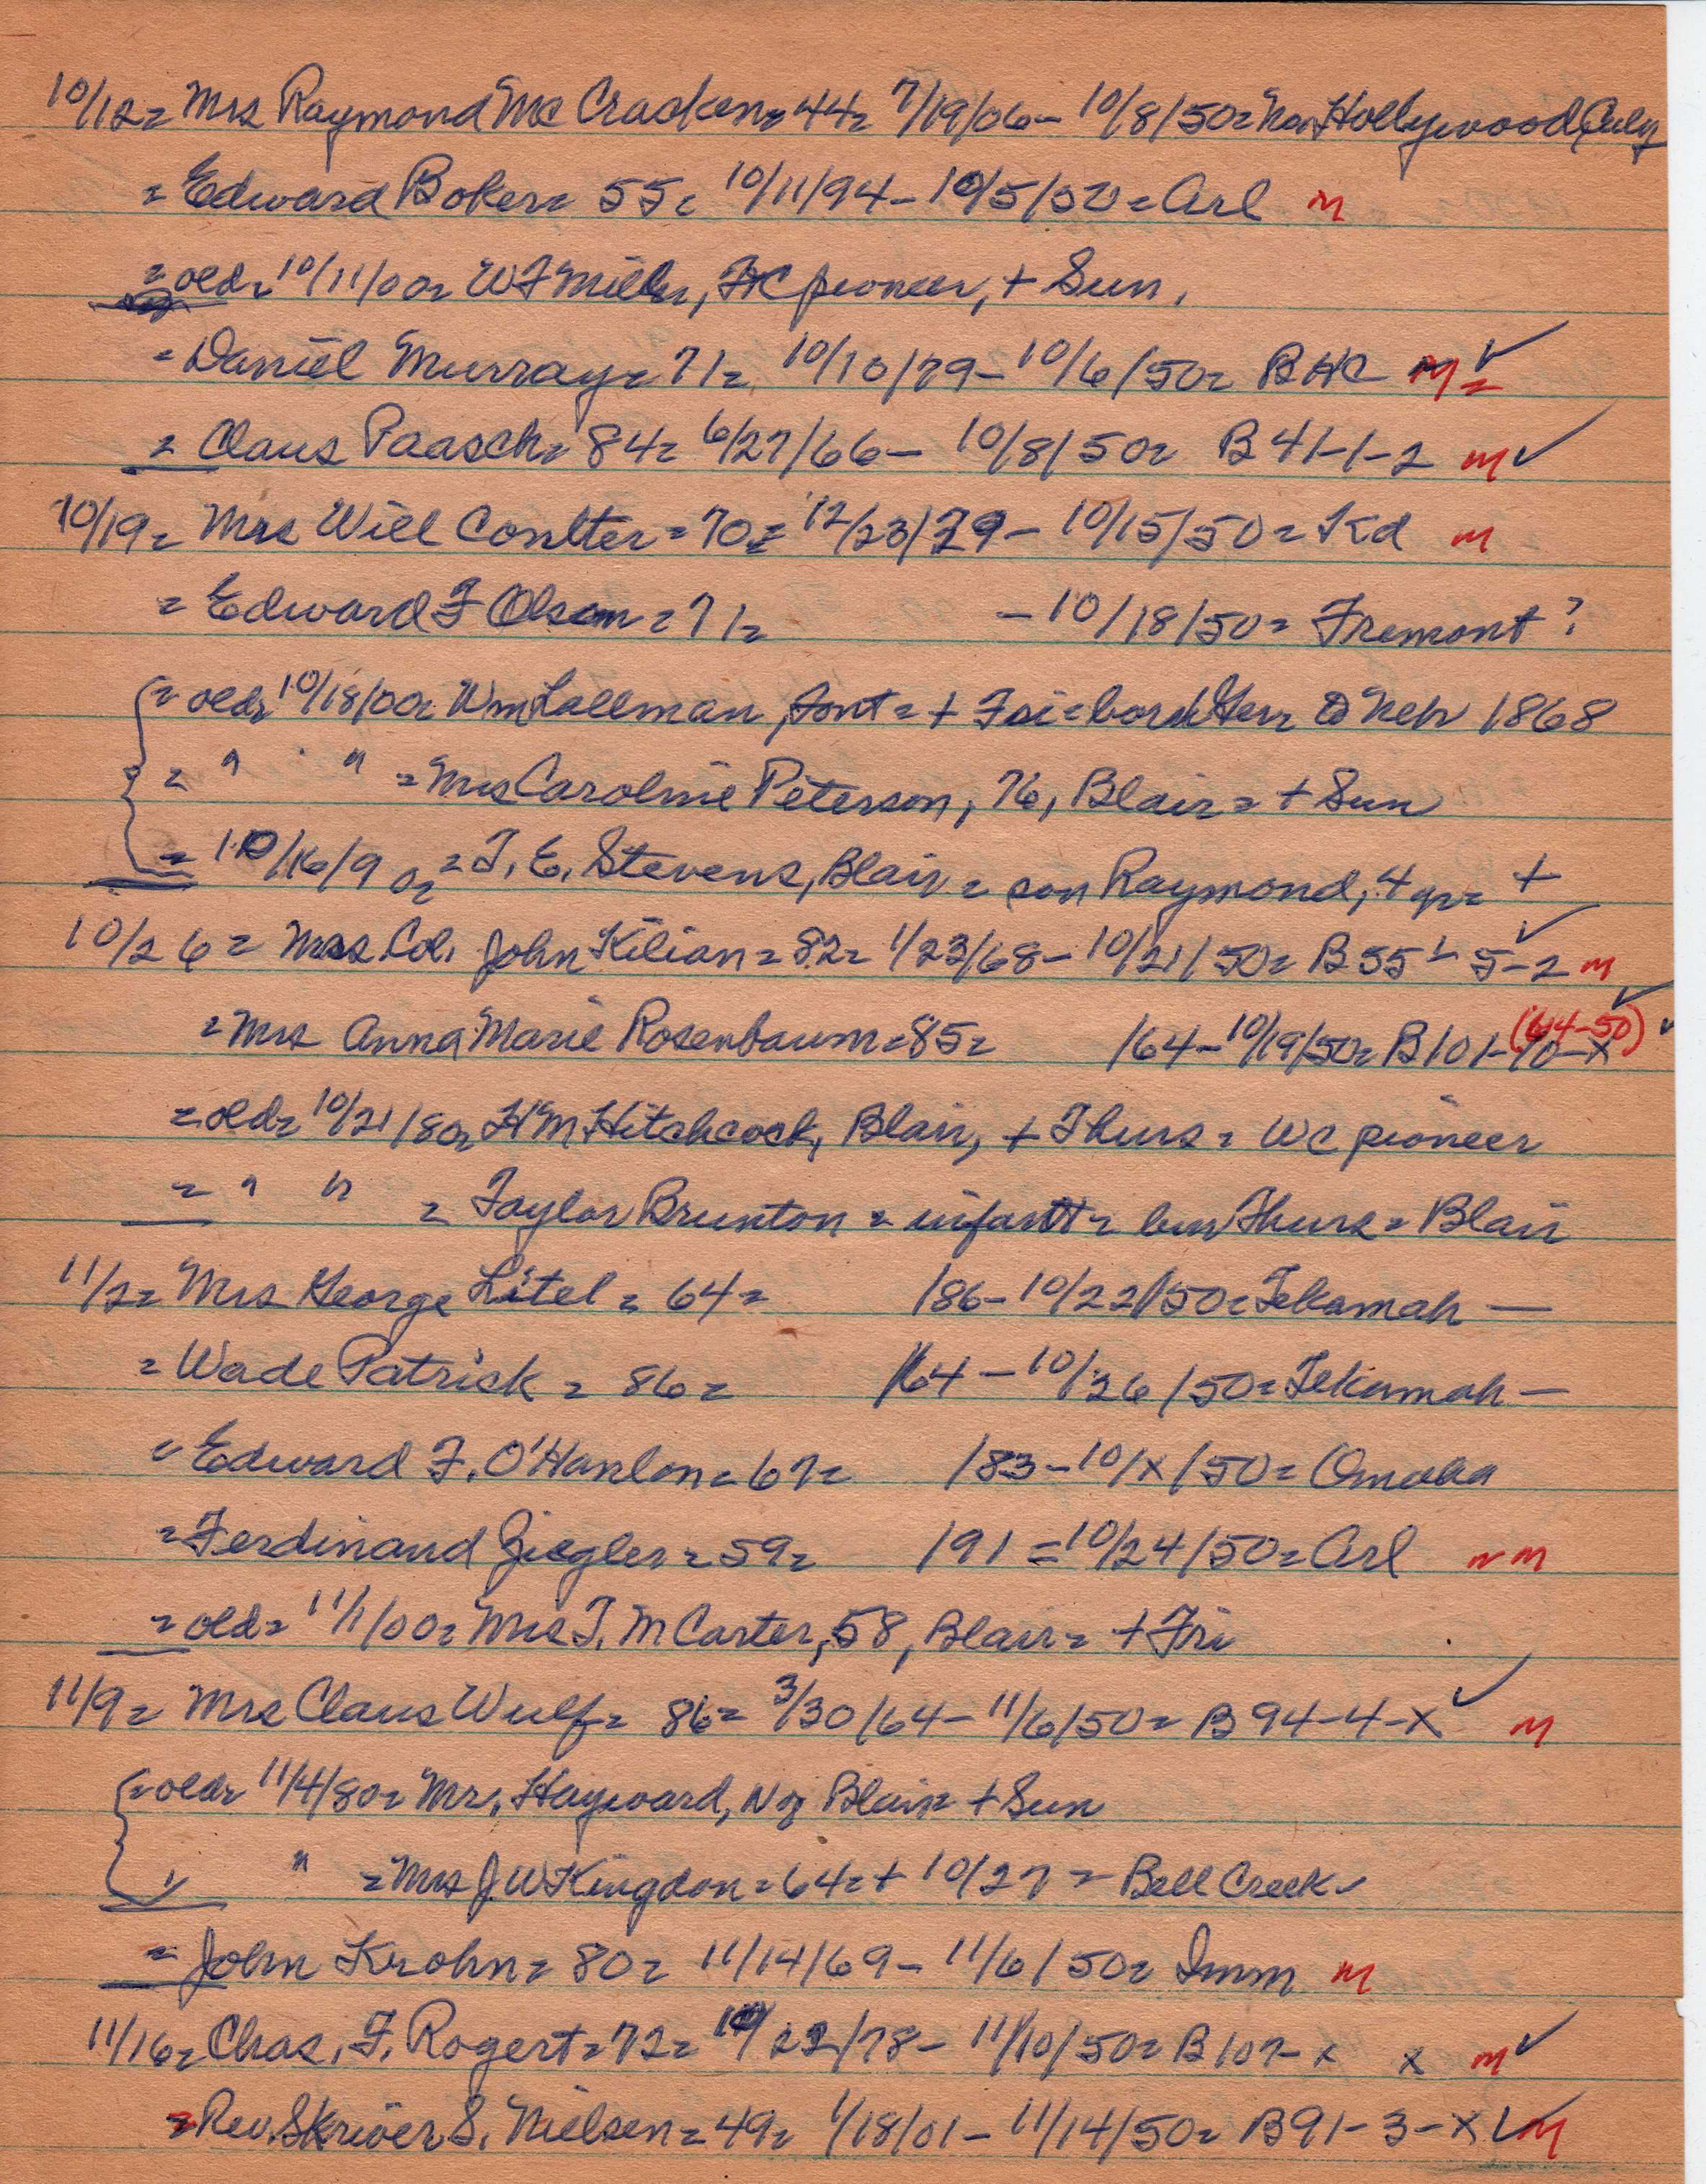 10/12= Mrs Raymond McCracken= 44= 7/19/06- 10/8/50= No. Hollywood,
= Edward Boker= 55= 10/11/94- 10/5/50= Arl M
= old= 10/11/00= W F Miller, FC pioneer, + Sun.
= Daniel Murray= 71= 10/10/79- 10/6/50= B HC M = ✓
= Claus Paasch= 84= 6/27/66- 10/8/50= B 41-1-2 M ✓
10/19= Mrs Will Coulter= 70= 12/23/79- 10/15/50= Kd M
= Edward F Olsen= 71= -10/18/50= Fremont?
= old= 10/18/00= Wm Lallman, font= + Fri= born Ger= Neb 1868
= " " = Mrs Caroline Peterson, 76, Blair= + Sun
= 10/16/90= T. E. Stevens, Blair= son Raymond, 4 yr= +
10/26= Mrs Col. John Kilian= 82= 1/23/68- 10/21/50= B 55-5-2 M ✓
= Mrs Anna Marie Rosenbaum= 85= /64- 10/19/50= B 101-10-X (64-50) ✓
= old= 10/21/80= H M Hitchcock, Blair, + Thurs= WC pioneer
= " " = Taylor Brunton= infant= bur Thurs= Blair
11/2= Mrs George Litel= 64= /86- 10/22/50= Tekamah —
= Wade Patrick= 86= /64- 10/26/50= Tekamah —
= Edward F. O'Hanlon= 67= /83- 10/X/50= Omaha
= Ferdinand Ziegler= 59= /91= 10/24/50= Arl M
= old= 11/1/00= Mrs T. M Carter, 58, Blair= + Fri
11/9= Mrs Claus Wulf= 86= 3/30/64- 11/6/50= B 94-4-X ✓ M
= old= 11/4/80= Mr. Hayward, N of Blair= + Sun
" = Mrs J. W Kingdon= 64= + 10/27= Bell Creek
= John Krohn= 80= 11/14/69- 11/6/50= Imm M
11/16= Chas. F. Rogert= 72= 10/22/78- 11/10/50= B 107- x x M ✓
= Rev. Skriver S. Nielsen= 49= 1/18/01- 11/14/50= B 91-3-X ✓ M